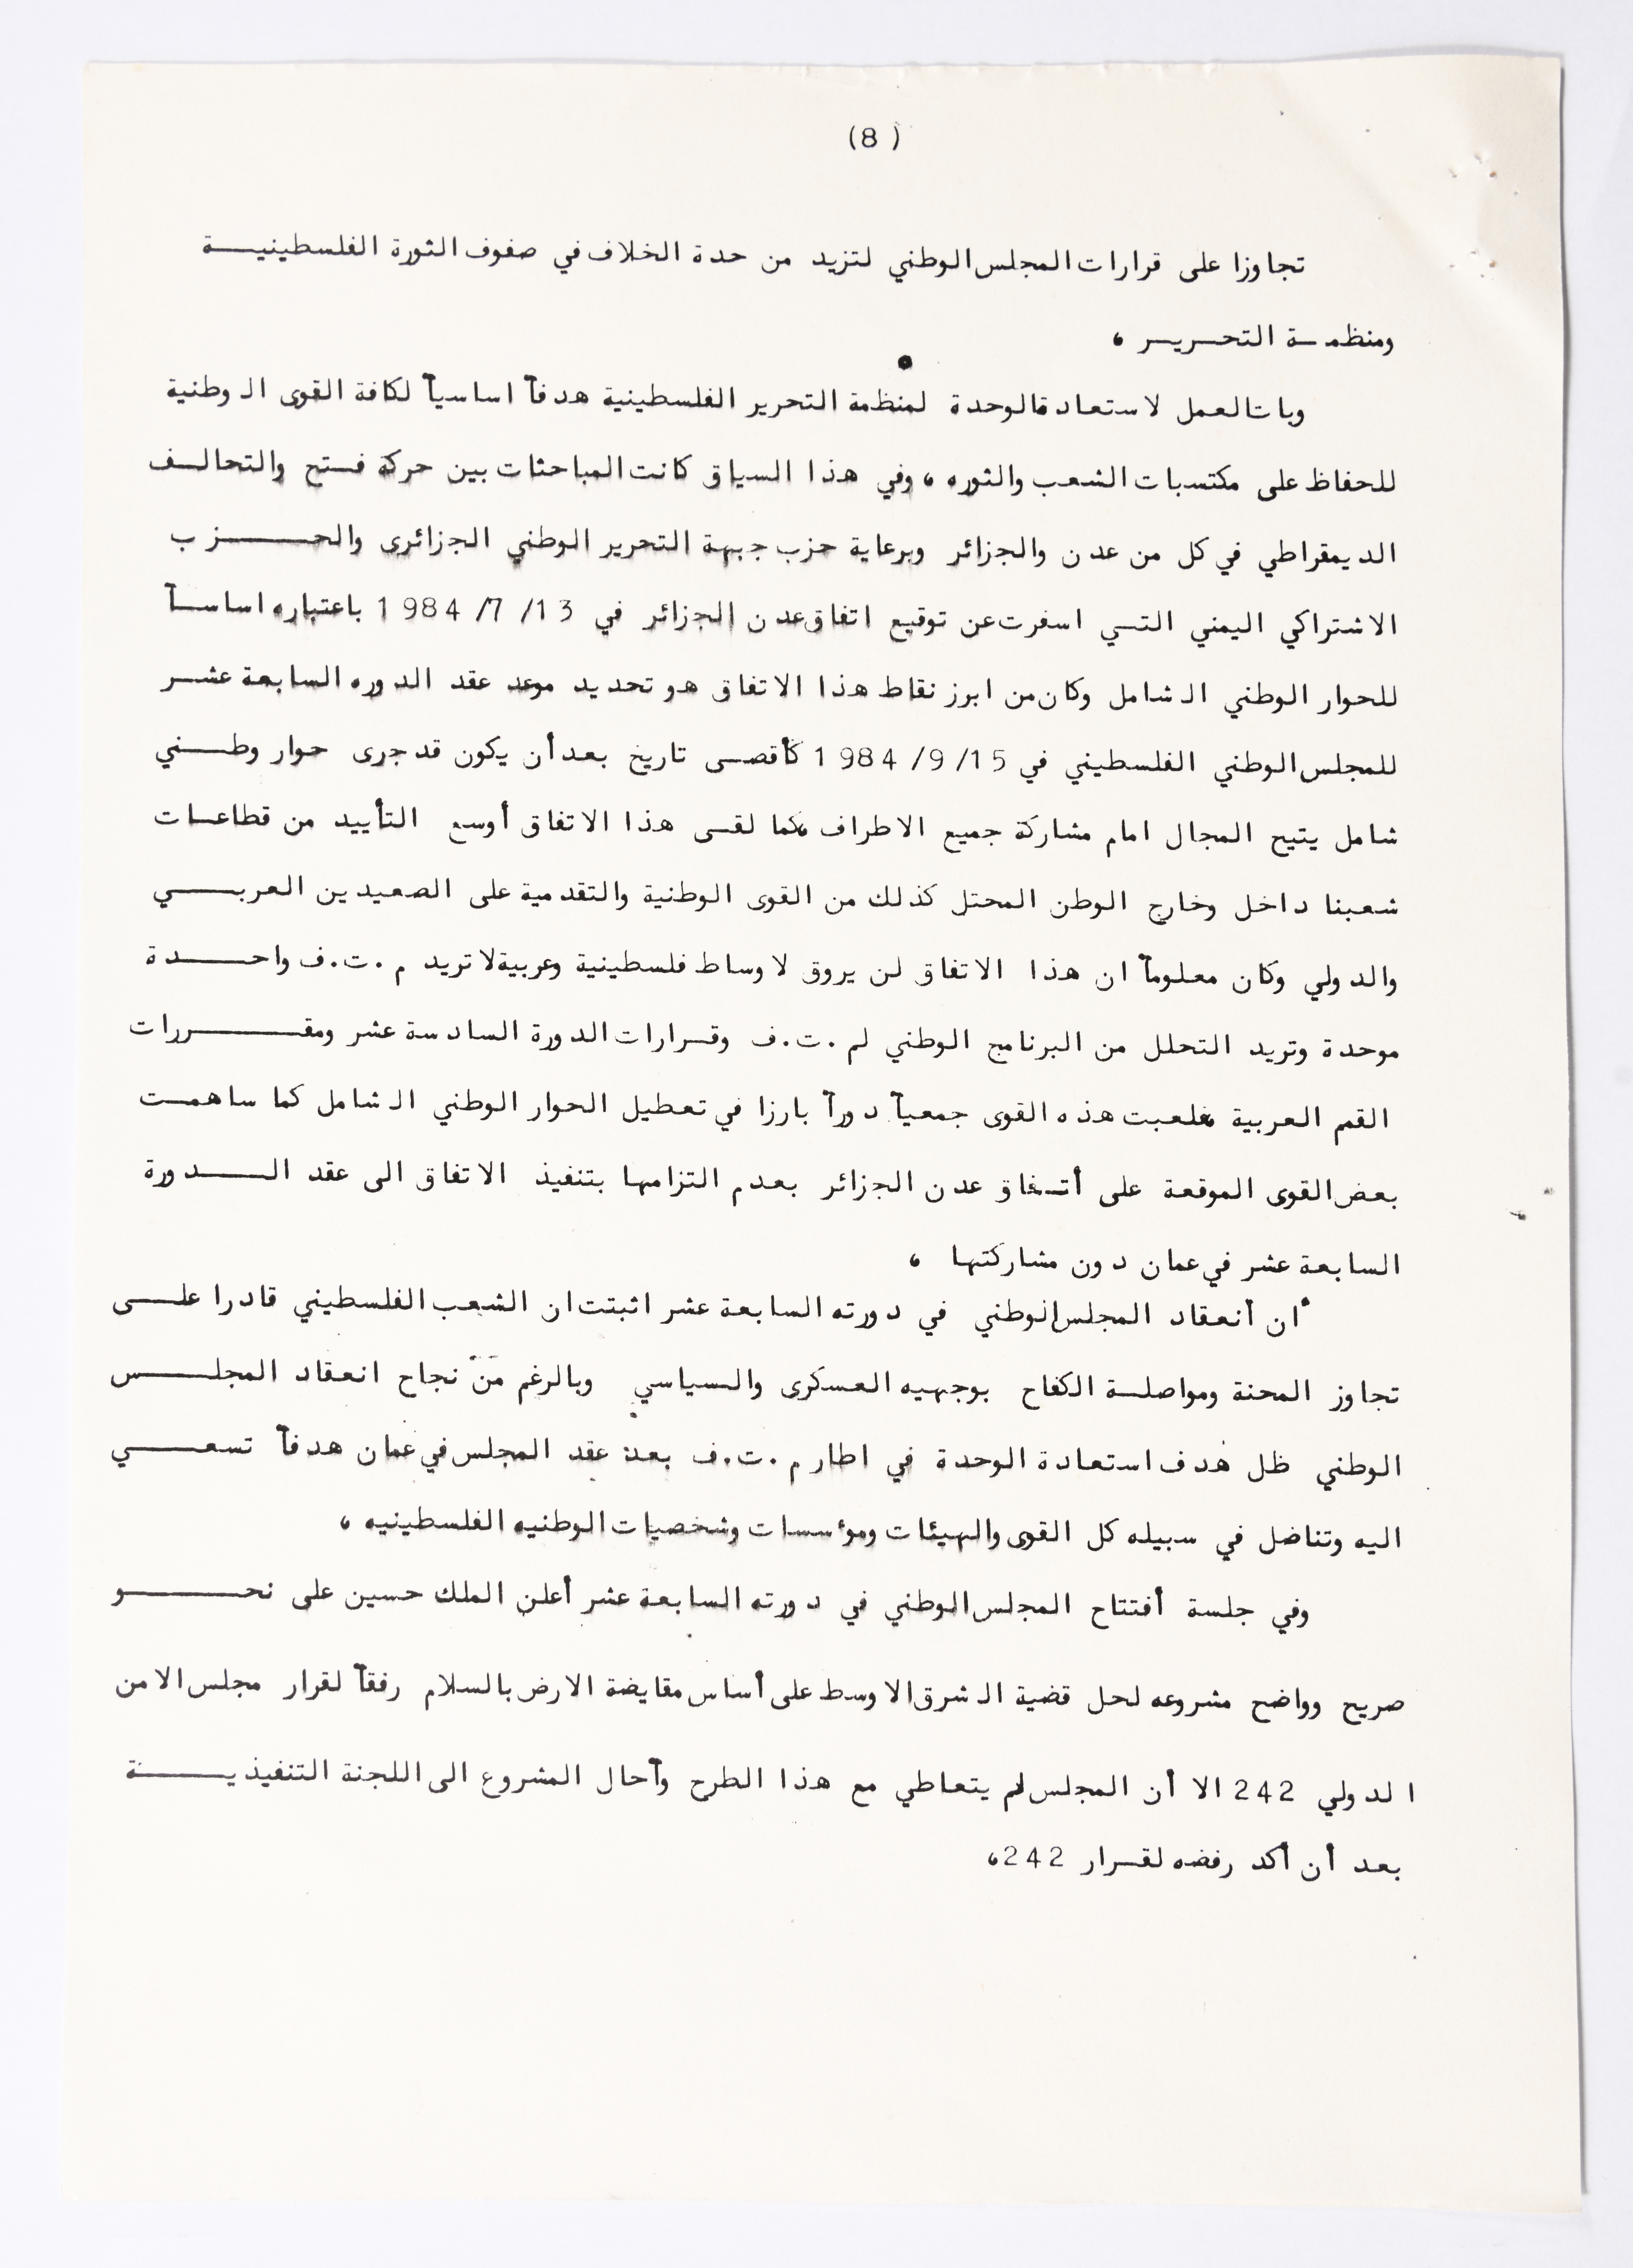 (8 )
تجاوزا على قرارات المجلس الوطني لتزيد من حدة الخلاف في صفوف الثورة الفلسطينية
ومنظمة التحرير ،
وبات العمل لاستعادة الوحدة لمنظمة التحرير الفلسطينية هدفاً اساسياً لكافة القوى الوطنية
للحفاظ على مكتسبات الشعب والثوره ، وفي هذا السياق كانت المباحثات بين حركة فتح والتحالف
الديمقراطي في كل من عدن والجزائر وبرعاية حزب جبهة التحرير الوطني الجزائرى والحزب
الاشتراكي اليمني التي اسفرت عن توقيع اتفاق عدن الجزائر في 13/ 7/ 1984 باعتباره اساساً
للحوار الوطني الشامل وكان من ابرز نقاط هذا الاتفاق هو تحديد موعد عقد الدوره السابعة عشر
للمجلس الوطني الفلسطيني في 15/ 9/ 1984 كأقصى تاريخ بعد أن يكون قد جرى حوار وطني
شامل يتيح المجال امام مشاركة جميع الاطراف ،كما لقى هذا الاتفاق أوسع التأييد من قطاعات
شعبنا داخل وخارج الوطن المحتل كذلك من القوى الوطنية والتقدمية على الصعيدين العربي
والدولي وكان معلوماً ان هذا الاتفاق لن يروق لاوساط فلسطينية وعربية لا تريد م.ت.ف واحدة
موحدة وتريد التحلل من البرنامج الوطني لم.ت.ف وقرارات الدورة السادسة عشر ومقررات
القم العربية ،فلعبت هذه القوى جمعياً دوراً بارزا في تعطيل الحوار الوطني الشامل كما ساهمت
بعض القوى الموقعة على أتفاق عدن الجزائر بعدم التزامها بتنفيذ الاتفاق الى عقد الدورة
السابعة عشر في عمان دون مشاركتها ،
ان أنعقاد المجلس الوطني في دورته السابعة عشر اثبتت ان الشعب الفلسطيني قادرا على
تجاوز المحنة ومواصلة الكفاح بوجهيه العسكرى والسياسي وبالرغم من نجاح انعقاد المجلس
الوطني ظل هدف استعادة الوحدة في اطار م.ت.ف بعد عقد المجلس في عمان هدفاً تسعي
اليه وتناضل في سبيله كل القوى والهيئات ومؤسسات وشخصيات الوطنيه الفلسطينيه ،
وفي جلسة أفتتاح المجلس الوطني في دورته السابعة عشر أعلن الملك حسين على نحو
صريح وواضح مشروعه لحل قضية الشرق الاوسط على أساس مقايضة الارض بالسلام رفقاً لقرار مجلس الامن
الدولي 242 الا أن المجلس لم يتعاطي مع هذا الطرح وأحال المشروع الى اللجنة التنفيذية
بعد أن أكد رفضه لقرار 242،